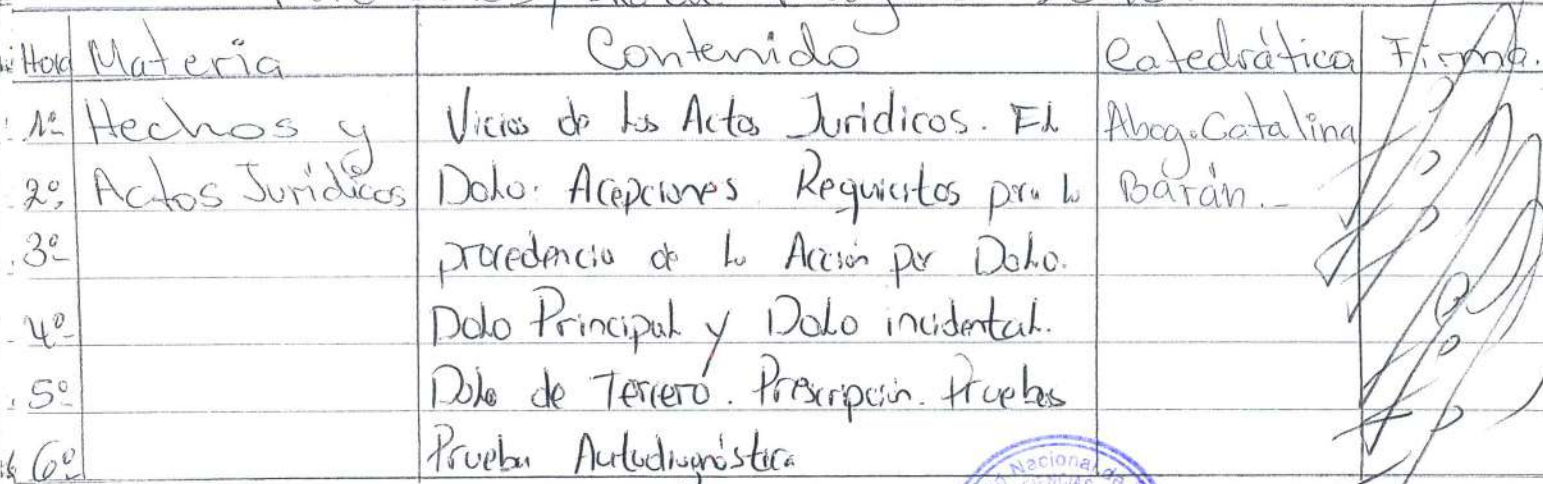 Hora Materia Contenido Catedrática Firma.
1º Hechos y Vicios de los Actos Juridicos. El Abog. Catalina
2º Actos Jurídicos Dolo: Acepciones Requicitos para la Barán.-
3º procedencia de la Acción por Dolo.
4º Dolo Principal y Dolo incidental.
5º Dolo de Tercero. Prescripción. Pruebas
6º Prueba Autodiagnóstica
Nacional de